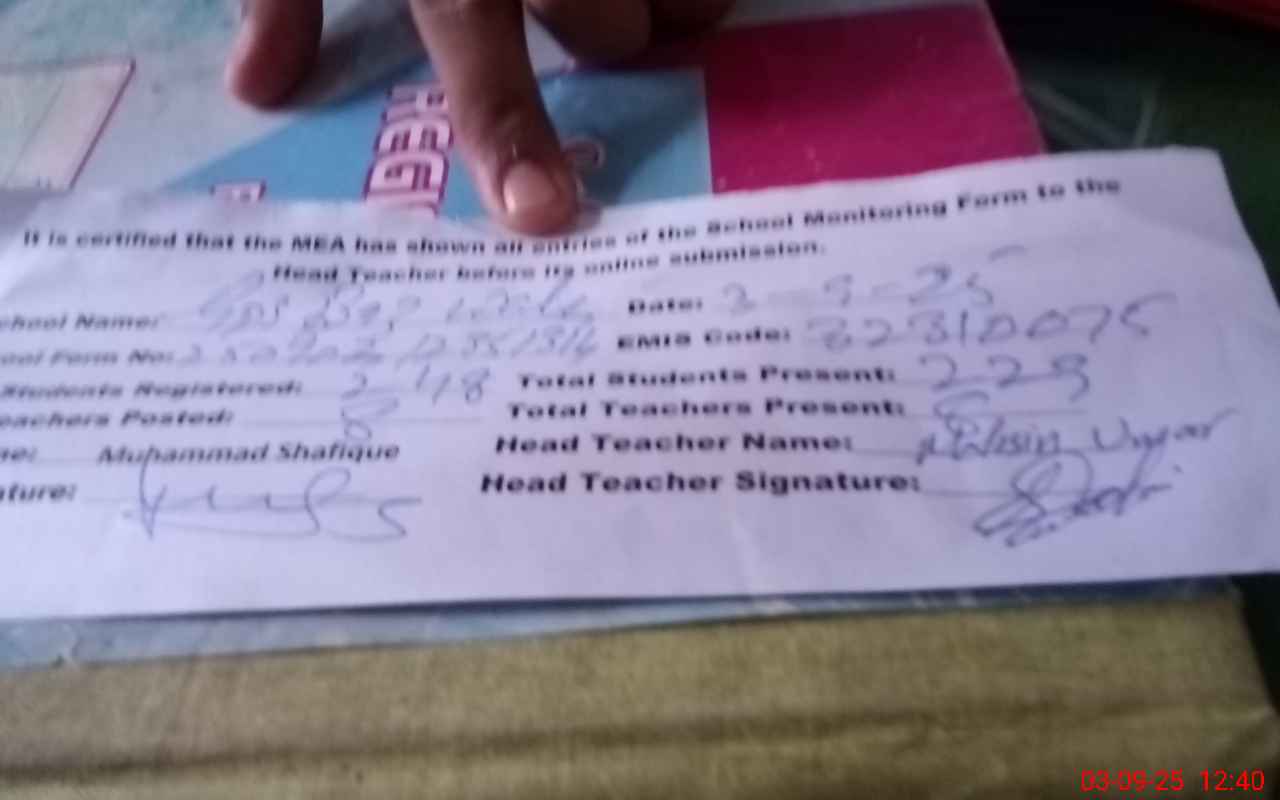 REGI
It is certified that the MEA has shown all entries of the School Monitoring Form to the
Head Teacher before its online submission.
chool Name: Date: 3-9-25
ool Form No: EMIS Code: 32310075
Students Registered: 248 Total Students Present: 229
eachers Posted: 8 Total Teachers Present:
me: Muhammad Shafique Head Teacher Name: Umar
ature: Head Teacher Signature:
03-09-25 12:40